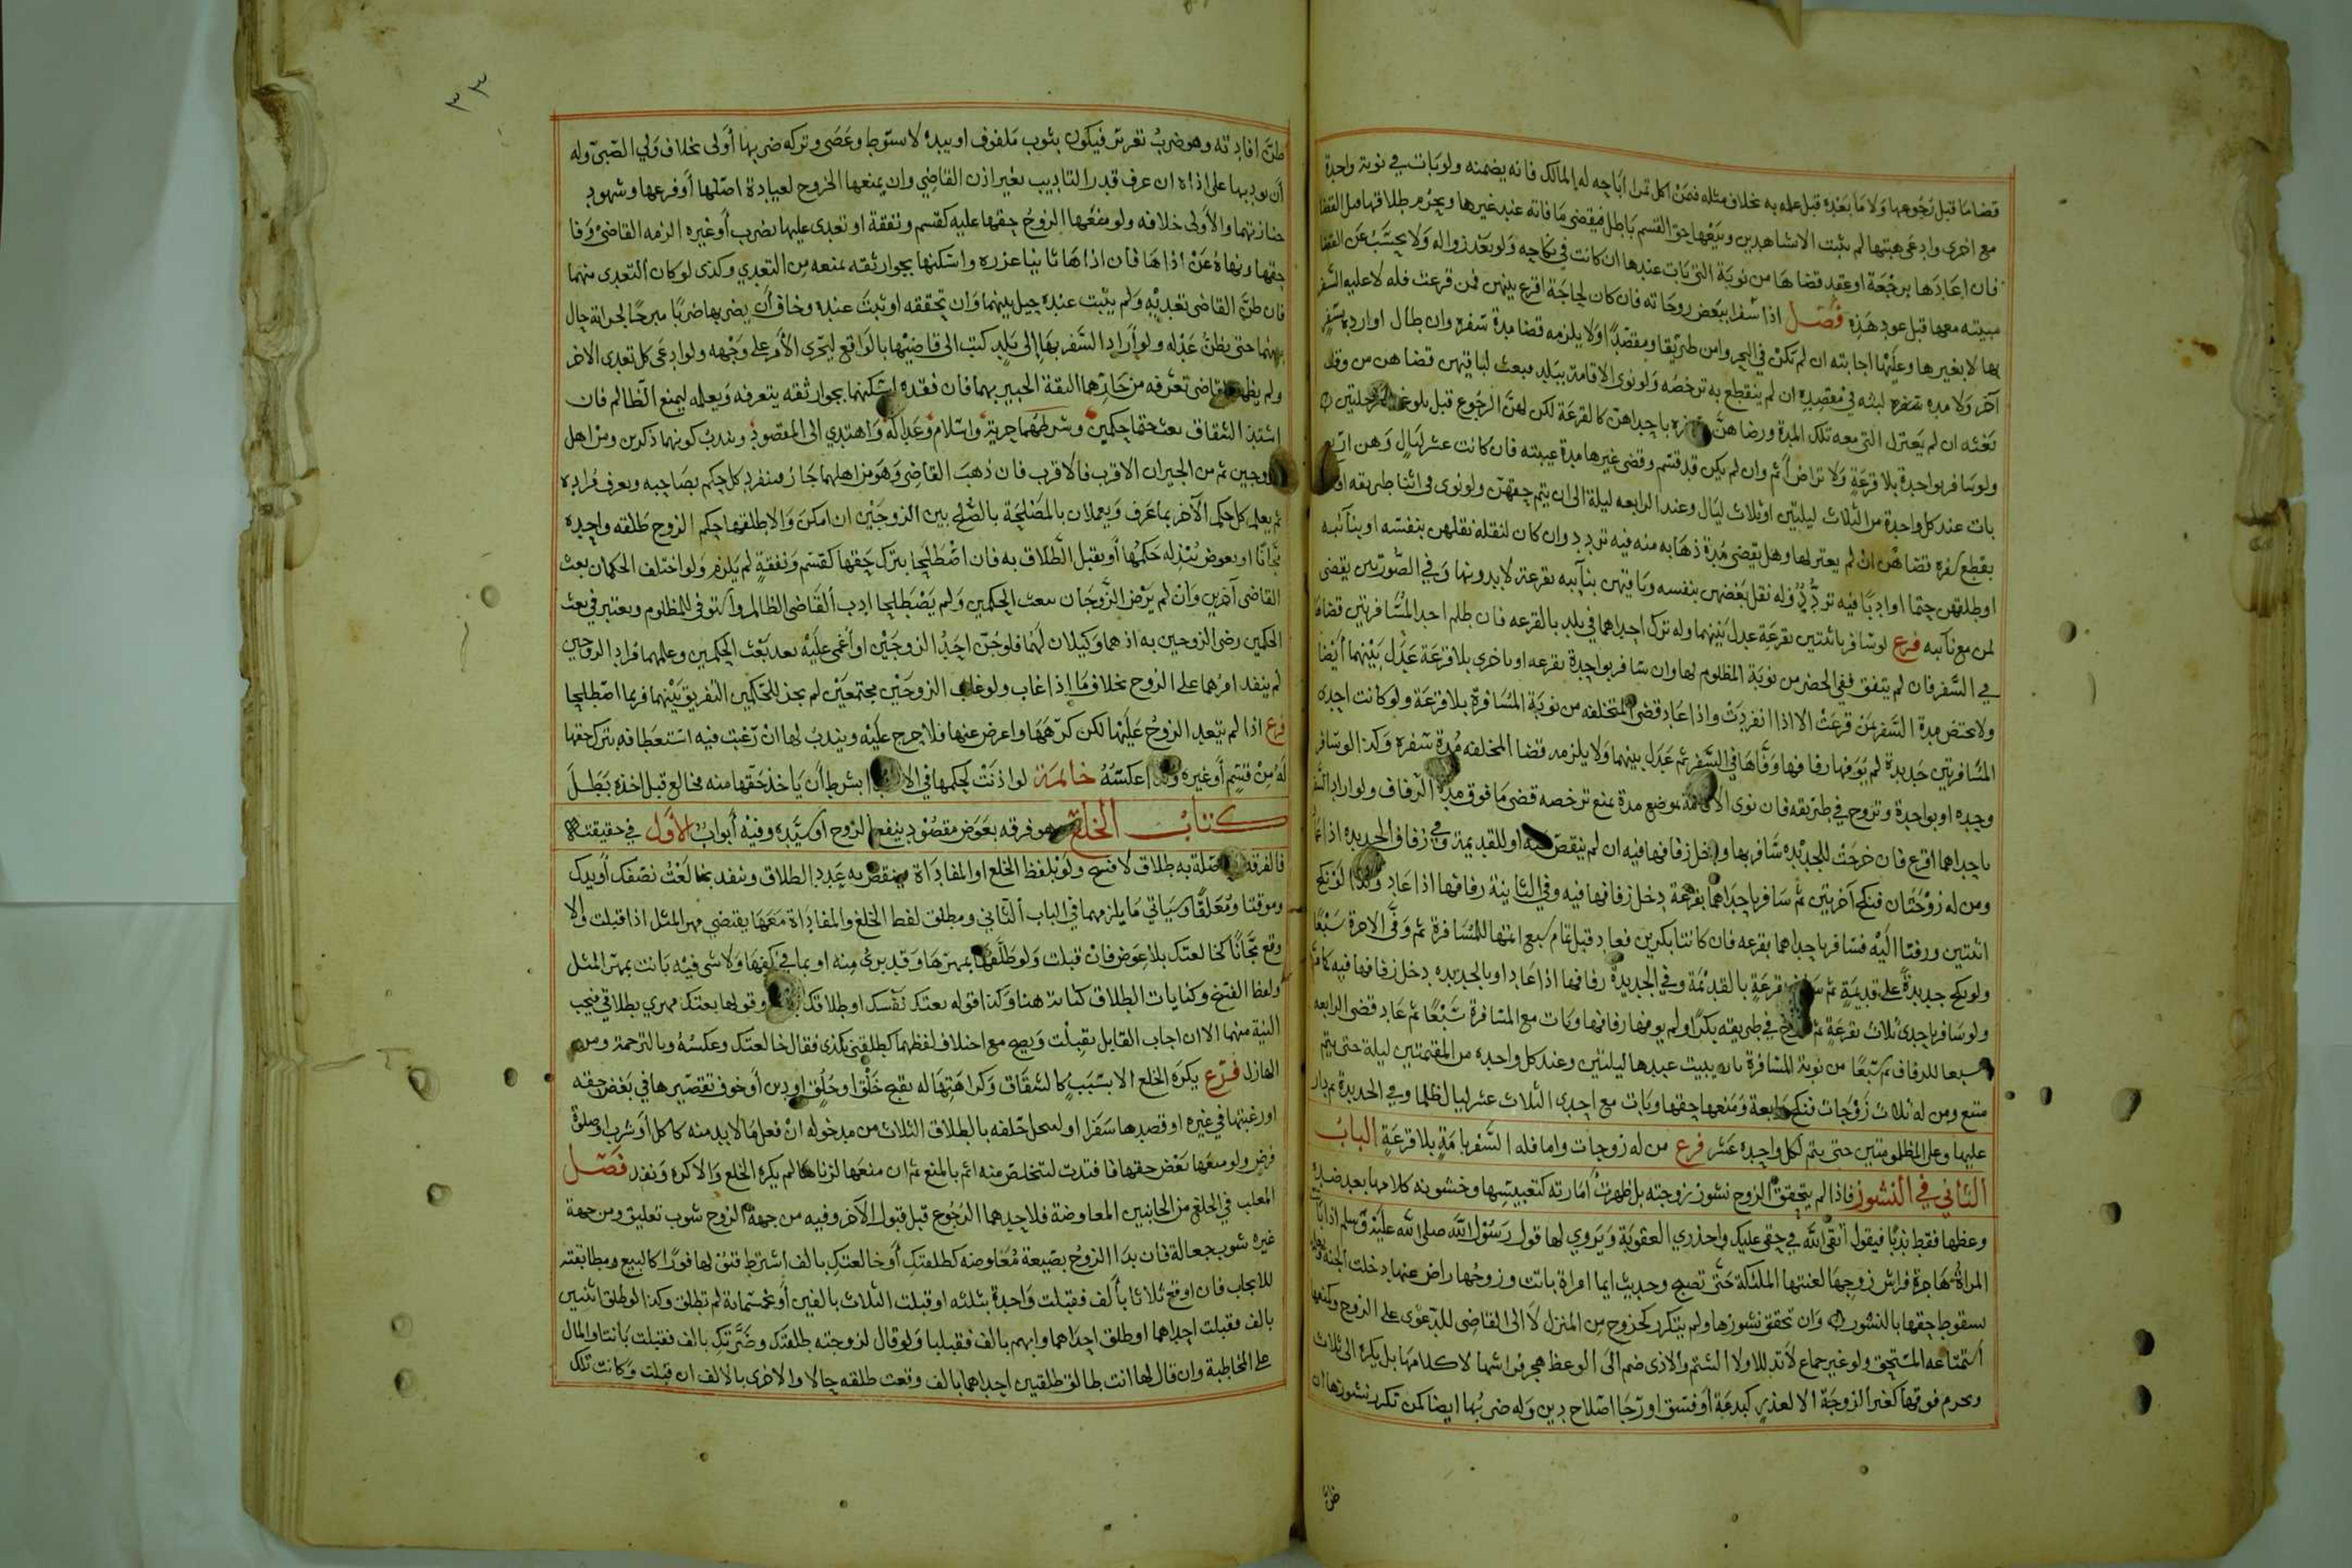 قضا ما قبل رجوعها ولا ما بعده قبل علمه به بخلاف مثله فيمن اكل ثمرا اباحه له المالك فانه يضمنه ولو بات في نوبة واحدة
مع اخرى وادعى هبتها لم يثبت الا بشاهدين وبيعها حق القسم باطل فيقضى ما فاته عند غيرها ويحرم طلاقها قبل القضا
فان اعادها برجعة او عقد قضاها من نوبة التي بات عندها ان كانت في نكاحه ولو بعد زواله ولا يحسب عن القضا
مبيته معها قبل عود هذه فصل اذا سفرا ببعض زوجاته فان كان لحاجة اقرع بينهن فمن قرعت فله لا عليه السفر
بها لا بغيرها وعليها اجابته ان لم تكن في البحر وامن طريقا ومقصدا ولا يلزمه قضا مدة سفره وان طال او اراد سفر
آخر ولا مدة سفره لبثه في مقصده ان لم ينقطع به ترخصه ولو نوى الاقامة ببلد فبعث لباقيهن قضاهن من وقت
بعثه ان لم يعتزل التي معه تلك المدة ورضاهن باحداهن كالقرعة لكن لهن الرجوع قبل بلوغ مرحلتين
ولو سافر بواحدة بلا قرعة ولا تراض أثم وان لم يكن قد قسم وقضى غيرها مدة غيبته فان كانت عشر ليال وهن اربع
بات عند كل واحدة من الثلاث ليلتين او ثلاث ليال وعند الرابعه ليلة الى ان يتم حقهن ولو نوى في اثنا طريقه
بقطع سفره قضاهن ان لم يعتزلها وهل يقضي مدة ذهابه منه فيه تردد وان كان لنقلة نقلهن بنفسه او بنائبه
او طلقهن حتما او ادبا فيه تردد وله نقل بعضهن بنفسه وباقيهن بنائبه بقرعة لا بدونها وفي الصورتين يقضي
لمن مع نائبه فرع لو سافر باثنتين بقرعة عدل بينهما وله ترك احداهما في بلد بالقرعه فان ظلم احد المسافرتين قضاها
في السفر فان لم يتفق ففي الحضر من نوبة المظلوم لها وان سافر بواحدة بقرعه او باخرى بلا قرعة عدل بينهما أيضا
ولا تختص مدة السفر بمن قرعت الا اذا انفردت واذا عاد قضى للمتخلفه من نوبة المسافرة بلا قرعة ولو كانت احدى
المسافرتين جديدة لم يوفها زفافها وفاها في السفر ثم عدل بينهما ولا يلزمه قضا المخلفه مدة سفره وكذا لو سافر
وحده او بواحدة وتزوج في طريقه فان نوى الاقامة بموضع مدة بمنع ترخصه قضى ما فوق مدة الزفاف ولو اراد السفر
باحداهما اقرع فان خرجت للجديده سافر بها ودخل زفافها فيه ان لم ينقض او للقديمة وفى زفاف الجديده اذا عاد
ومن له زوجتان فنكح آخرتين ثم سافر باحداهما بقرعة دخل زفافها فيه وفي الثانية زفافها اذا عاد وكذا لو نكح
اثنتين وزفتا اليه فسافر باحداهما بقرعه فان كانتا بكرين فعاد قبل تمام سبع اتمها للمسافرة ثم وفى الاخرة سبعا
ولو نكح جديدة على قديمة ثم بقرعة بالقديمة وفي الجديدة زفافها اذا عاد او بالجديده دخل زفافها فيه كما مر
ولو سافر باحدى ثلاث بقرعة ثم في طريقه بكرا ولم يوفها زفافها وبات مع المسافرة سبعا ثم عاد قضى الرابعه
سبعا للزفاف ثم سبعا من نوبة المسافرة بان يبيت عندها ليلتين وعند كل واحده من المقيمتين ليلة حتى يتم
سبع ومن له ثلاث زوجات فنكح رابعة ومنعها حقها وبات مع احدى الثلاث عشر ليال ظلما وفي الجديدة
عليها وعلى المظلومتين حتى يتم لكل واحده عشر فرع من له زوجات واما فله السفر بامة بلا قرعة الباب
الثاني في النشوز فاذا لم يتحقق الزوج نشوز زوجته بل ظهرت امارته كتعبيسها وخشونه كلامها بعد ضده
وعظها فقط ندبا فيقول اتقى الله في حقي عليك واحذري العقوبة ويروي لها قول رسول الله صلى الله عليه وسلم اذا باتت
المرأة هاجرة فراش زوجها لعنتها الملئكة حتى تصبح وحديث ايما امراة باتت وزوجها راض عنها دخلت الجنة
لسقوط حقها بالنشوز وان تحقق نشوزها ولم يتكرر كخروج من المنزل لا الى القاضي للدعوى على الزوج وكمنعها
استمتاعه المستحق ولو غير جماع لا تدللا ولا الشتم والاذى ضم الى الوعظ هجر فراشها لا كلامها بل يكره الى ثلاث
ويحرم فوقها كغير الزوجة الا لعذر كبدعة أو فسق او رجا اصلاح دين وله ضربها ايضا كمن تكرر نشوزها ان
ظن
٣٣
ظن افادته وهو ضرب تعزير فيكون بثوب ملفوف او بيده لا بسوط وعصى وتركه ضربها أولى بخلاف ولي الصبي وله
أن يؤدبها على اذاه ان عرف قدر التاديب بغير اذن القاضي وان يمنعها الخروج لعيادة اصلها أو فرعها وشهود
جنازتهما والأولى خلافه ولو منعها الزوج حقها عليه كقسم ونفقة او تعدى عليها بضرب أو غيره الزمه القاضي وفا
حقها ونهاه عن اذاها فان اذاها ثانيا عزره واسكنها بجوار ثقه بمنعه من التعدي وكذى لو كان التعدى منهما
فان ظن القاضي تعديه ولم يثبت عنده حيل بينهما وان تحققه او ثبت عنده وخاف أن يضربها ضربا مبرحا لجرأته حال
بينهما حتى يظن عدله ولو أراد السفر بها إلى بلد كتب الى قاضيها بالواقع ليجري الأمر على وجهه ولو ادعى كل تعدى الاخر
ولم يظهر لقاضي تعرفه من جارهما الثقة الخبير بهما فان فقده اسكنهما بجوار ثقه يتعرفه ويعلمه ليمنع الظالم فان
اشتد الشقاق بعث حتما حكمين وشرطهما حرية واسلام وعدالة واهتدي الى المقصود وندب كونهما ذكرين ومن اهل
الزوجين ثم من الجيران الاقرب فالاقرب فان ذهب القاضي وهو من اهلهما جاز فينفرد كل حكم بصاحبه ويعرف مراده
ثم يعلم كل حكم الآخر بما عرف ويعملان بالمصلحة بالصلح بين الزوجين ان امكن والا طلقها حكم الزوج طلقه واحدة
مجانا او بعوض تبذله حكمها أو بقبل الطلاق به فان اصطلحا بترك حقها كقسم ونفقة لم يلزم ولو اختلف الحكمان بعث
القاضي آخرين وان لم يرض الزوجان ببعث الحكمين ولم يصطلحا ادب القاضي الظالم واستوفى للمظلوم ويعتبر في بعث
الحكمين رضى الزوجين به اذ هما وكيلان لهما فلو جن احد الزوجين او اغمى عليه بعد بعث الحكمين وعلمهما مراد الزوجين
لم ينفذ امرهما على الزوج بخلاف ما اذا غاب ولو غاب الزوجين مجتمعين لم يجز للحكمين التفريق بينهما فربما اصطلحا
فرع اذا لم يتعد الزوج عليها لكن كرهها واعرض عنها فلا حرج عليه ويندب لها ان رغبت فيه استعطافه بترك حقها
له من قسم أو غيره وكذا عكسه خاتمة لو اذنت لحكمها في بشرط أن ياخذ حقها منه فخالع قبل اخذه بطل
كتاب الخلع هو فرقه بعوض مقصود ينفع الزوج او سيده وفيه أبواب الأول في حقيقته
فالفرقة الحاصلة به طلاق لا فسخ ولو بلفظ الخلع او المفاداة فينقص به عدد الطلاق وينفد بخالعت نصفك أو يدك
وموقتا ومعلقا وسياتي ما يلزمهما في الباب الثاني ومطلق لفظ الخلع والمفاداة معها يقتضي مهر المثل اذا قبلت والا
وقع مجانا كخالعتك بلا عوض فان قبلت ولو طلقها بمهرها وقد برئ منه او بما في كفها ولا شي فيه بانت بمهر المثل
ولفظ الفسخ وكنايات الطلاق كناية هنا وكذا قوله بعتك نفسك او طلاقك وقولها بعتك مهري بطلاقي فيجب
النية منهما الا ان اجاب القابل بقبلت ويصح مع اختلاف لفظهما كطلقني بكذى فقال خالعتك وعكسه وبالترجمة ومن
الهازل فرع يكره الخلع الا بسبب كالشقاق وكراهتها له بقبح خلق او خلق او دين أو خوف تقصيرها في بعض حقه
او رغبتها في غيره او قصدها سفرا او لتحل حلفه بالطلاق الثلاث من مدخوله ان فعل ما لا بد منه كاكل أو شرب او صلاة
فرض ولو منعها بعض حقها فافتدت لتتخلص منه اثم بالمنع ثم ان منعها لزناها لم يكره الخلع والا كره ونفد فصل
المغلب في الخلع من الجانبين المعاوضة فلاحدهما الرجوع قبل قبول الآخر وفيه من جهة الزوج شوب تعليق ومن جهة
غيره شوب جعالة فان بدا الزوج بصيغة معاوضه كطلقتك أو خالعتك بالف اشترط قبولها فورا كالبيع ومطابقته
للايجاب فان اوقع ثلاثا بألف فقبلت واحدة بثلثه او قبلت الثلاث بالفين أو بخمسمائة لم تطلق وكذا لو طلق اثنتين
بالف فقبلت احداهما او طلق احداهما وابهم بالف فقبلتا ولو قال لزوجته طلقتك وضرتك بالف فقبلت بانتا والمال
على المخاطبة وان قال لها انت طالق طلقتين احداهما بالف وقعت طلقه حالا والاخرى بالالف ان قبلت وكانت تلك